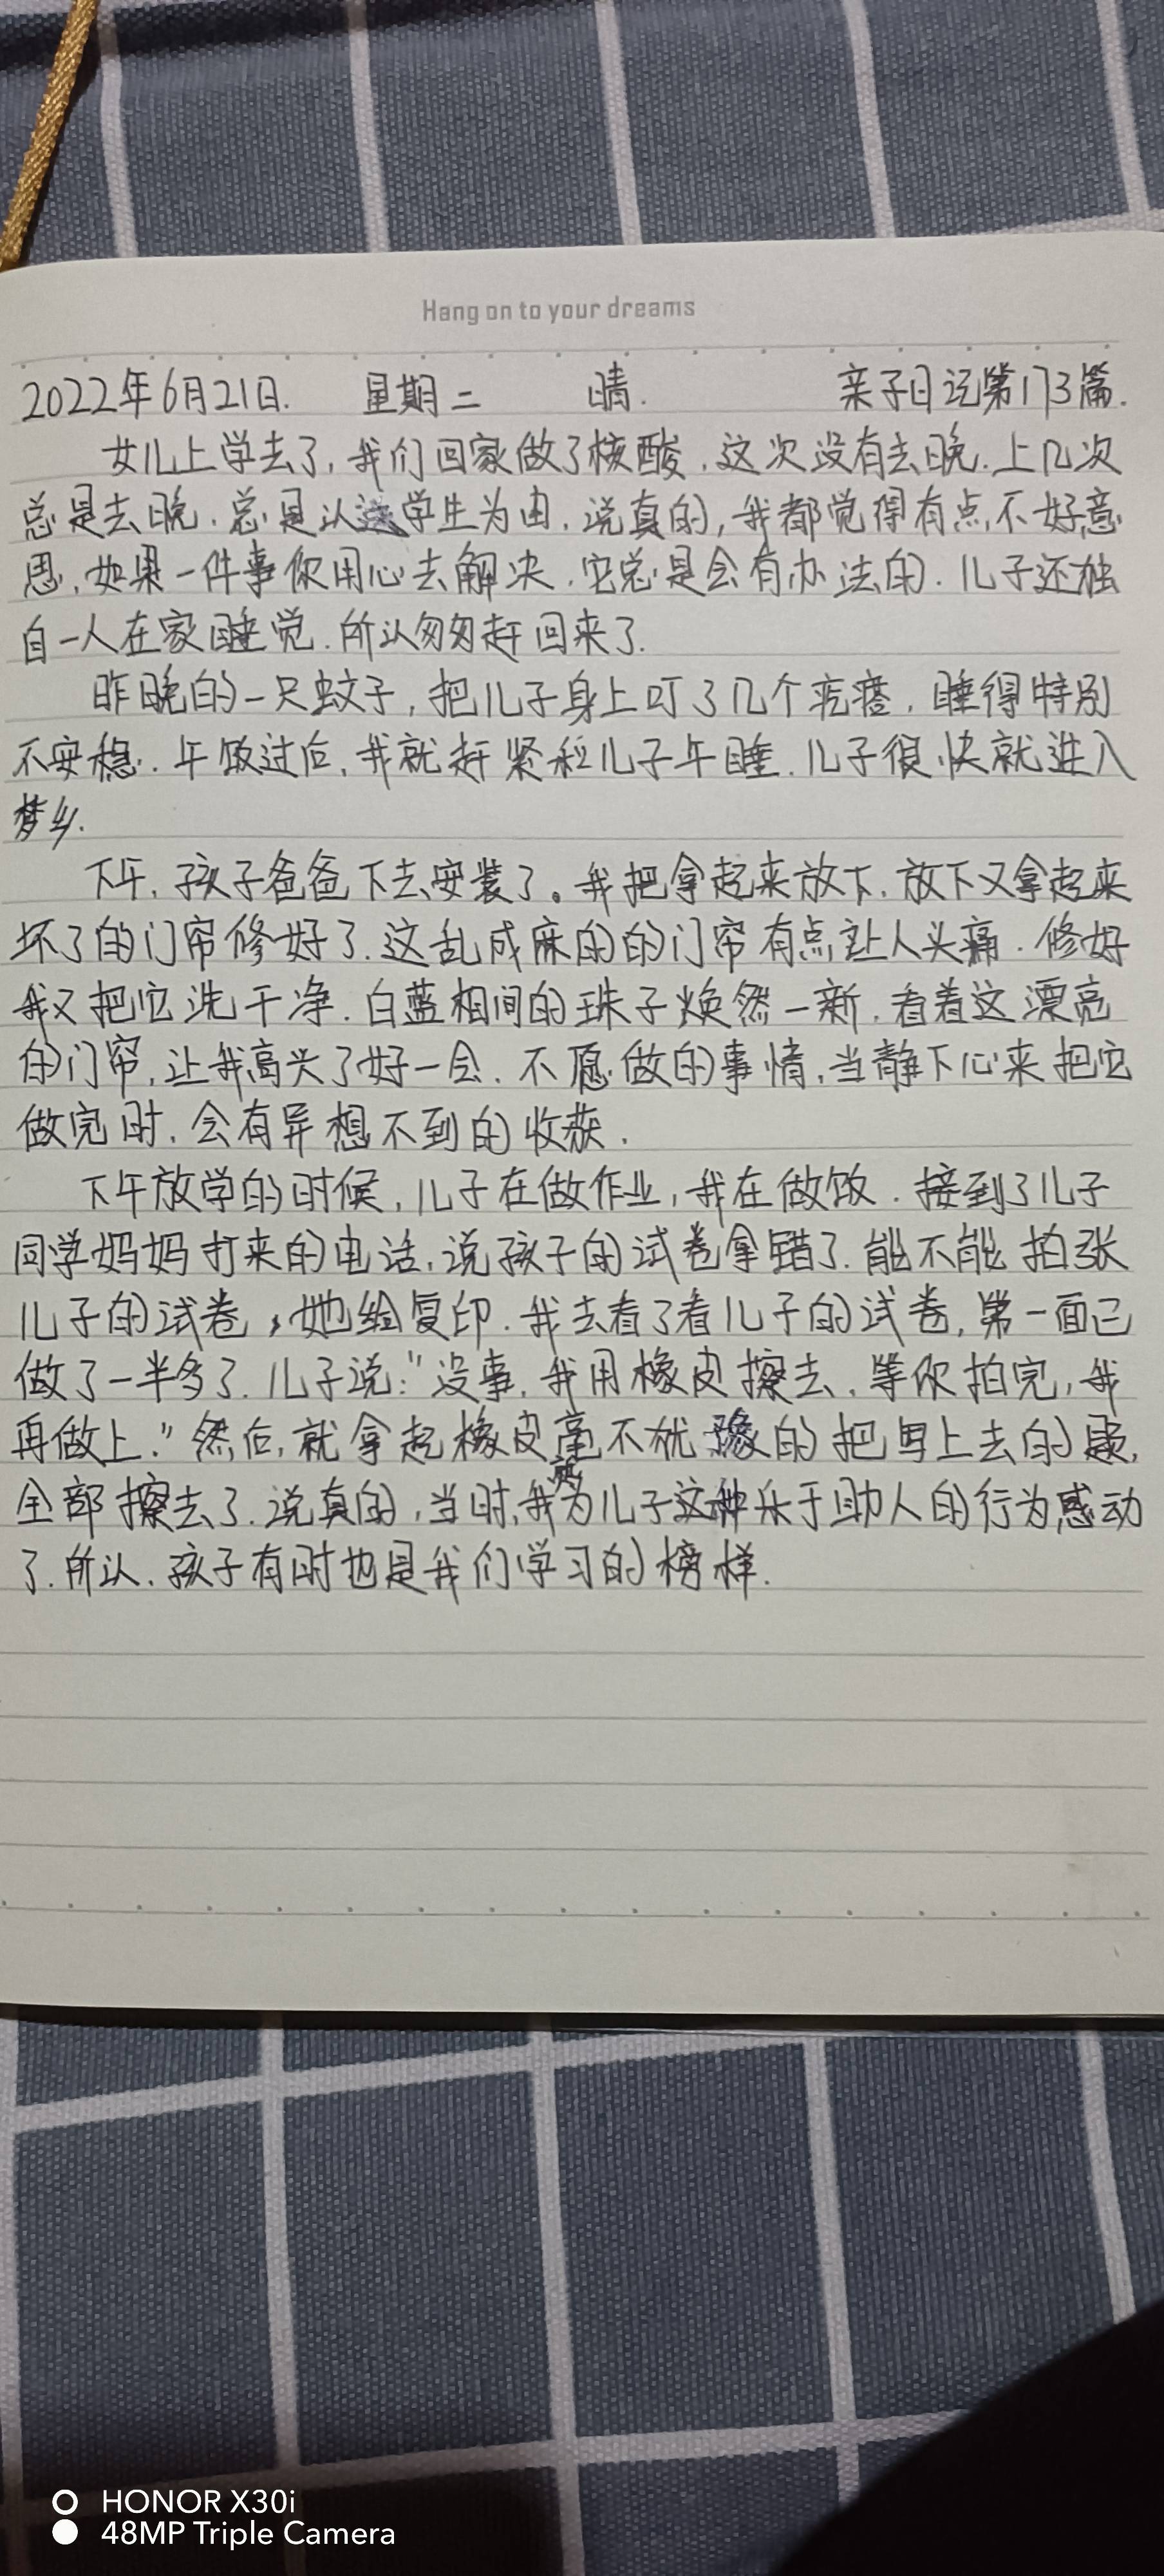 Hang on to your dreams
2022年6月21日. 星期二 晴. 亲子日记第173篇.
女儿上学去了,我们回家做了核酸.这次没有去晚.上几次
总是去晚.总是以送学生为由.说真的,我都觉得有点不好意
思,如果一件事你用心去解决.它总是会有办法的.儿子还独
自一人在家睡觉.所以匆匆赶回来了.
昨晚的一只蚊子,把儿子身上叮了几个疙瘩,睡得特别
不安稳.午饭过后,我就赶紧和儿子午睡.儿子很快就进入
梦乡.
下午,孩子爸爸下去安装了。我把拿起来放下,放下又拿起来
坏了的门帘修好了.这乱成麻的的门帘有点让人头痛.修好
我又把它洗干净.白蓝相间的珠子焕然一新.看着这漂亮
的门帘,让我高兴了好一会.不愿做的事情,当静下心来把它
做完时,会有异想不到的收获.
下午放学的时候,儿子在做作业,我在做饭.接到了儿子
同学妈妈打来的电话,说孩子的试卷拿错了.能不能拍张
儿子的试卷,她给复印.我去看了看儿子的试卷,第一面已
做了一半多了.儿子说:"没事,我用橡皮擦去,等你拍完,我
再做上."然后,就拿起橡皮毫不犹豫的把写上去的题,
全部擦去了.说真的,当时,我为儿子这种乐于助人的行为感动
了.所以.孩子有时也是我们学习的榜样.
HONOR X30i
48MP Triple Camera